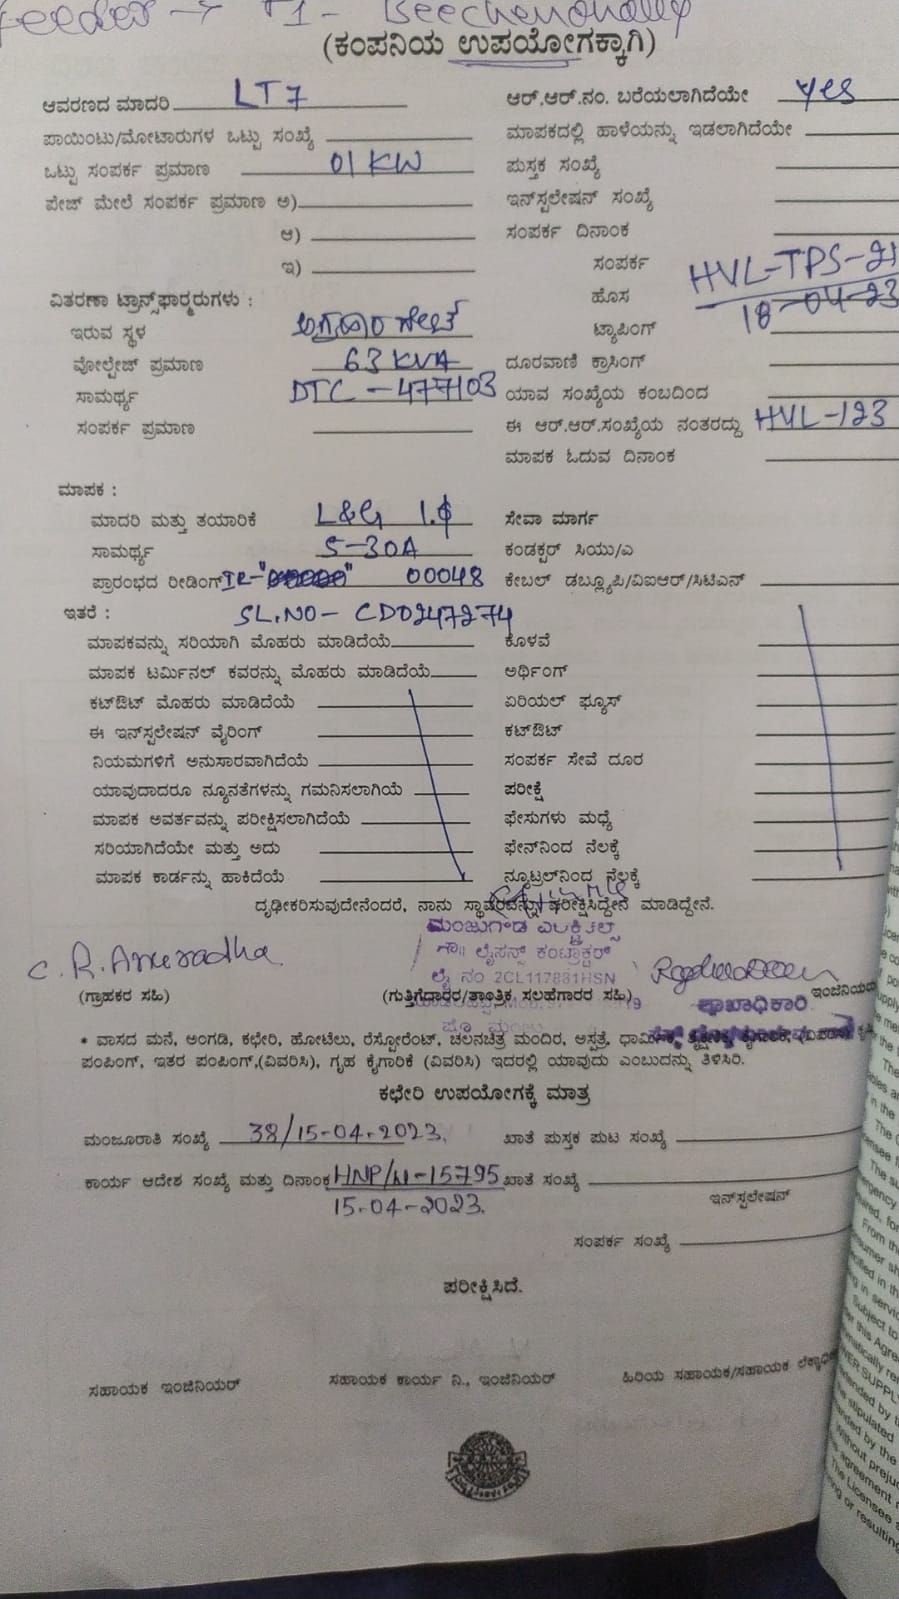 Feeder → F1- Beechenahally
(ಕಂಪನಿಯ ಉಪಯೋಗಕ್ಕಾಗಿ)
ಆವರಣದ ಮಾದರಿ LT7 ಆರ್.ಆರ್.ನಂ. ಬರೆಯಲಾಗಿದೆಯೇ Yes
ಪಾಯಿಂಟು/ಮೋಟಾರುಗಳ ಒಟ್ಟು ಸಂಖ್ಯೆ ಮಾಪಕದಲ್ಲಿ ಹಾಳೆಯನ್ನು ಇಡಲಾಗಿದೆಯೇ
ಒಟ್ಟು ಸಂಪರ್ಕ ಪ್ರಮಾಣ 01 KW ಪುಸ್ತಕ ಸಂಖ್ಯೆ
ಪೇಜ್ ಮೇಲೆ ಸಂಪರ್ಕ ಪ್ರಮಾಣ ಅ) ಇನ್‌ಸ್ಟಲೇಷನ್ ಸಂಖ್ಯೆ
ಆ) ಸಂಪರ್ಕ ದಿನಾಂಕ
ಇ) ಸಂಪರ್ಕ HVL-TPS-21
ವಿತರಣಾ ಟ್ರಾನ್ಸ್‌ಫಾರ್ಮರುಗಳು : ಹೊಸ 18-04-23
ಇರುವ ಸ್ಥಳ ಅಗ್ರಹಾರ ಗೇಟ್ ಟ್ಯಾಪಿಂಗ್
ವೋಲ್ಟೇಜ್ ಪ್ರಮಾಣ 63 KVA ದೂರವಾಣಿ ಕ್ರಾಸಿಂಗ್
ಸಾಮರ್ಥ್ಯ DTC - 477103 ಯಾವ ಸಂಖ್ಯೆಯ ಕಂಬದಿಂದ
ಸಂಪರ್ಕ ಪ್ರಮಾಣ ಈ ಆರ್.ಆರ್.ಸಂಖ್ಯೆಯ ನಂತರದ್ದು HVL-123
ಮಾಪಕ ಓದುವ ದಿನಾಂಕ
ಮಾಪಕ :
ಮಾದರಿ ಮತ್ತು ತಯಾರಿಕೆ L&G 1.ϕ ಸೇವಾ ಮಾರ್ಗ
ಸಾಮರ್ಥ್ಯ 5-30A ಕಂಡಕ್ಟರ್ ಸಿಯು/ಎ
ಪ್ರಾರಂಭದ ರೀಡಿಂಗ್ IR- 00048 ಕೇಬಲ್ ಡಬ್ಲ್ಯೂಪಿ/ವಿಐಆರ್/ಸಿಟಿಎಸ್
ಇತರೆ : SL.NO- CD0247274
ಮಾಪಕವನ್ನು ಸರಿಯಾಗಿ ಮೊಹರು ಮಾಡಿದೆಯೆ ಕೊಳವೆ
ಮಾಪಕ ಟರ್ಮಿನಲ್ ಕವರನ್ನು ಮೊಹರು ಮಾಡಿದೆಯೆ ಅರ್ಥಿಂಗ್
ಕಟ್‌ಔಟ್ ಮೊಹರು ಮಾಡಿದೆಯೆ ಏರಿಯಲ್ ಫ್ಯೂಸ್
ಈ ಇನ್‌ಸ್ಟಲೇಷನ್ ವೈರಿಂಗ್ ಕಟ್‌ಔಟ್
ನಿಯಮಗಳಿಗೆ ಅನುಸಾರವಾಗಿದೆಯೆ ಸಂಪರ್ಕ ಸೇವೆ ದೂರ
ಯಾವುದಾದರೂ ನ್ಯೂನತೆಗಳನ್ನು ಗಮನಿಸಲಾಗಿಯೆ ಪರೀಕ್ಷೆ
ಮಾಪಕ ಅವರ್ತವನ್ನು ಪರೀಕ್ಷಿಸಲಾಗಿದೆಯೆ ಫೇಸುಗಳು ಮಧ್ಯೆ
ಸರಿಯಾಗಿದೆಯೇ ಮತ್ತು ಅದು ಫೇಸ್‌ನಿಂದ ನೆಲಕ್ಕೆ
ಮಾಪಕ ಕಾರ್ಡನ್ನು ಹಾಕಿದೆಯೆ ನ್ಯೂಟ್ರಲ್‌ನಿಂದ ನೆಲಕ್ಕೆ
ದೃಢೀಕರಿಸುವುದೇನೆಂದರೆ, ನಾನು ಸ್ಥಾವರವನ್ನು ಪರೀಕ್ಷಿಸಿದ್ದೇನೆ ಮಾಡಿದ್ದೇನೆ.
ಮಂಜುಗೌಡ ಎಲೆಕ್ಟ್ರಿಕಲ್ಸ್
ಲೈಸನ್ಸ್ ಕಂಟ್ರಾಕ್ಟರ್
C. R. Anuradha ಲೈ ನಂ 2CL117881HSN
(ಗ್ರಾಹಕರ ಸಹಿ) (ಗುತ್ತಿಗೆದಾರರ/ತಾಂತ್ರಿಕ ಸಲಹೆಗಾರರ ಸಹಿ) ಶಾಖಾಧಿಕಾರಿ
* ವಾಸದ ಮನೆ, ಅಂಗಡಿ, ಕಛೇರಿ, ಹೋಟೆಲು, ರೆಸ್ಟೋರೆಂಟ್, ಚಲನಚಿತ್ರ ಮಂದಿರ, ಆಸ್ಪತ್ರೆ,
ಪಂಪಿಂಗ್, ಇತರ ಪಂಪಿಂಗ್,(ವಿವರಿಸಿ), ಗೃಹ ಕೈಗಾರಿಕೆ (ವಿವರಿಸಿ) ಇದರಲ್ಲಿ ಯಾವುದು ಎಂಬುದನ್ನು ತಿಳಿಸಿರಿ.
ಕಛೇರಿ ಉಪಯೋಗಕ್ಕೆ ಮಾತ್ರ
ಮಂಜೂರಾತಿ ಸಂಖ್ಯೆ 38/15-04-2023. ಖಾತೆ ಪುಸ್ತಕ ಪುಟ ಸಂಖ್ಯೆ
ಕಾರ್ಯ ಆದೇಶ ಸಂಖ್ಯೆ ಮತ್ತು ದಿನಾಂಕ HNP/N-15795 ಖಾತೆ ಸಂಖ್ಯೆ
15-04-2023. ಇನ್‌ಸ್ಟಲೇಷನ್
ಸಂಪರ್ಕ ಸಂಖ್ಯೆ
ಪರೀಕ್ಷಿಸಿದೆ.
ಸಹಾಯಕ ಇಂಜಿನಿಯರ್ ಸಹಾಯಕ ಕಾರ್ಯ ನಿ., ಇಂಜಿನಿಯರ್ ಹಿರಿಯ ಸಹಾಯಕ/ಸಹಾಯಕ